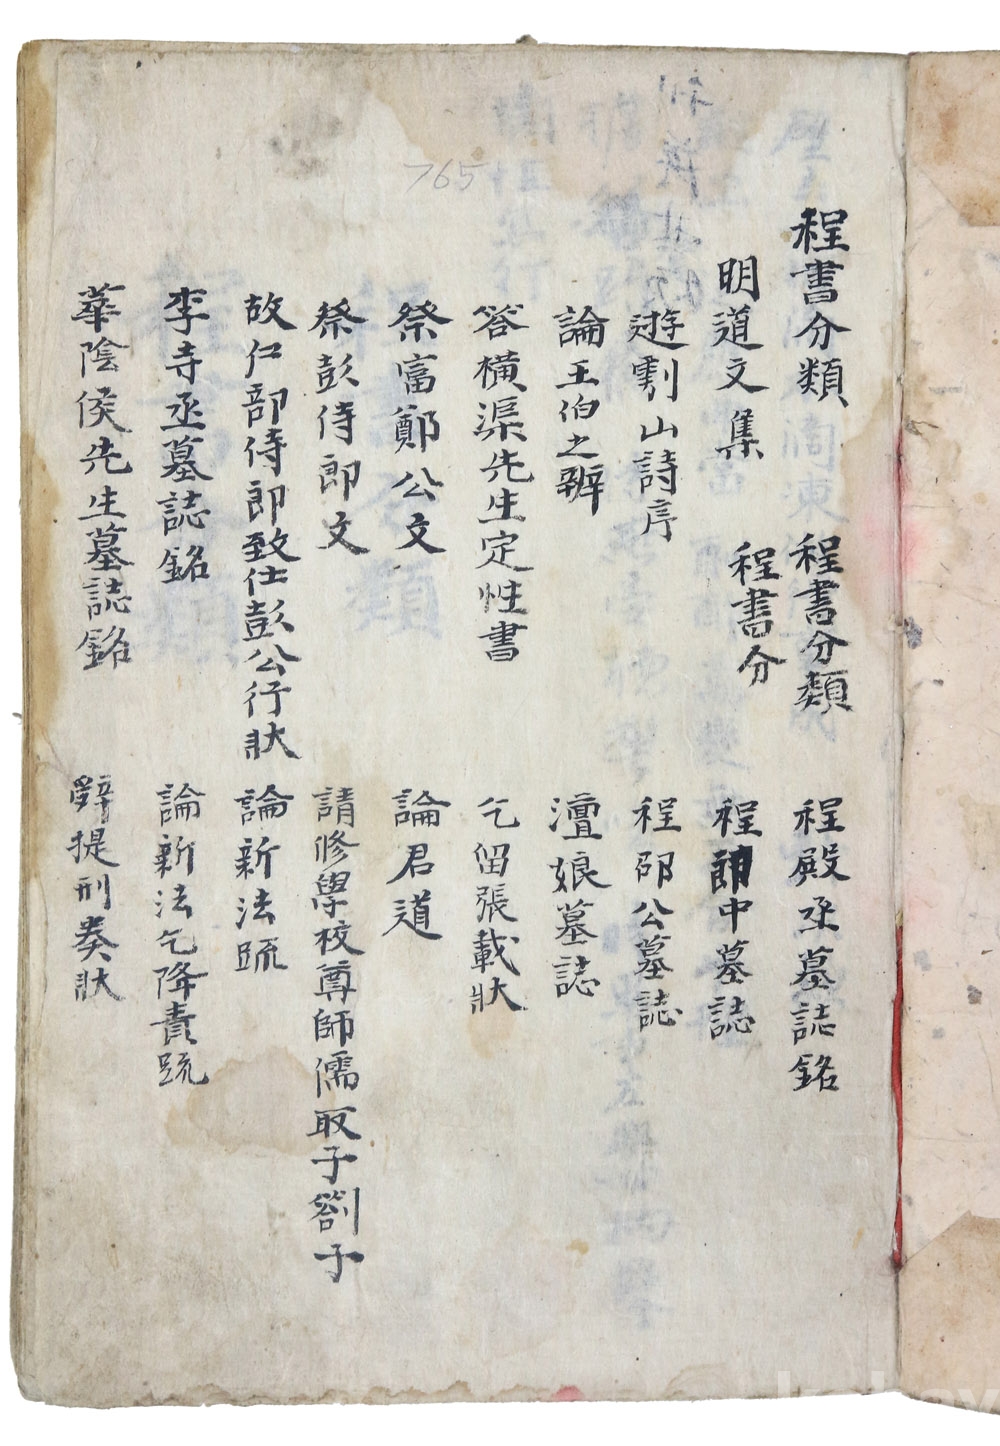 765
程書分類 程書分類 程殿丞墓誌銘
明道文集 程書分 程郎中墓誌
遊鄠山詩序 程邵公墓誌
論王伯之辨 澶娘墓誌
答橫渠先生定性書 乞留張載狀
祭富鄭公文 論君道
祭彭侍郎文 請修學校尊師儒取子劄子
故仁部侍郎致仕彭公行狀 論新法疏
李寺丞墓誌銘 論新法乞降責疏
華陰侯先生墓誌銘 辭提刑奏狀